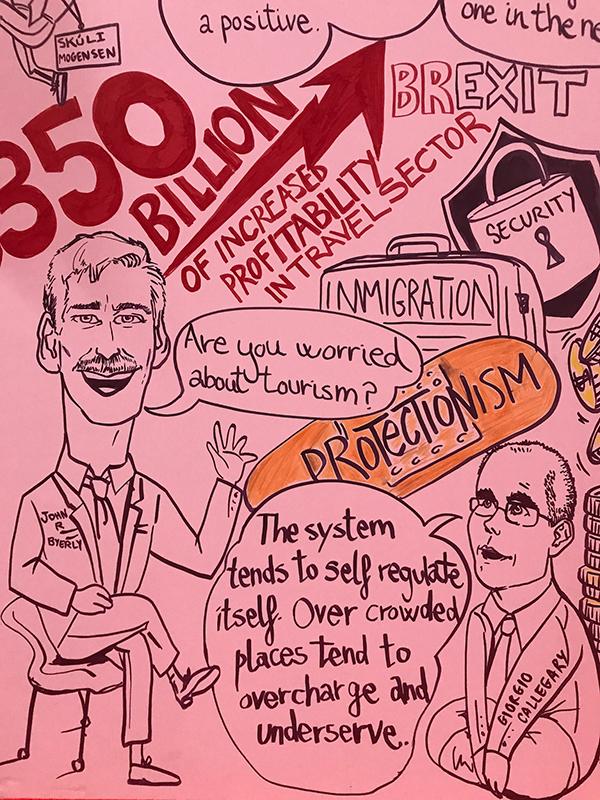 a positive.
one in the ne
SKÚLI
MOGENSEN
350
BILLION
OF INCREASED
PROFITABILITY
IN TRAVEL SECTOR
BREXIT
SECURITY
INMIGRATION
Are you worried
about tourism?
PROTECTIONISM
JOHN
R
BYERLY
The system
tends to self regulate
itself. Over crowded
places tend to
overcharge and
underserve..
GIORGIO
CALLEGARY